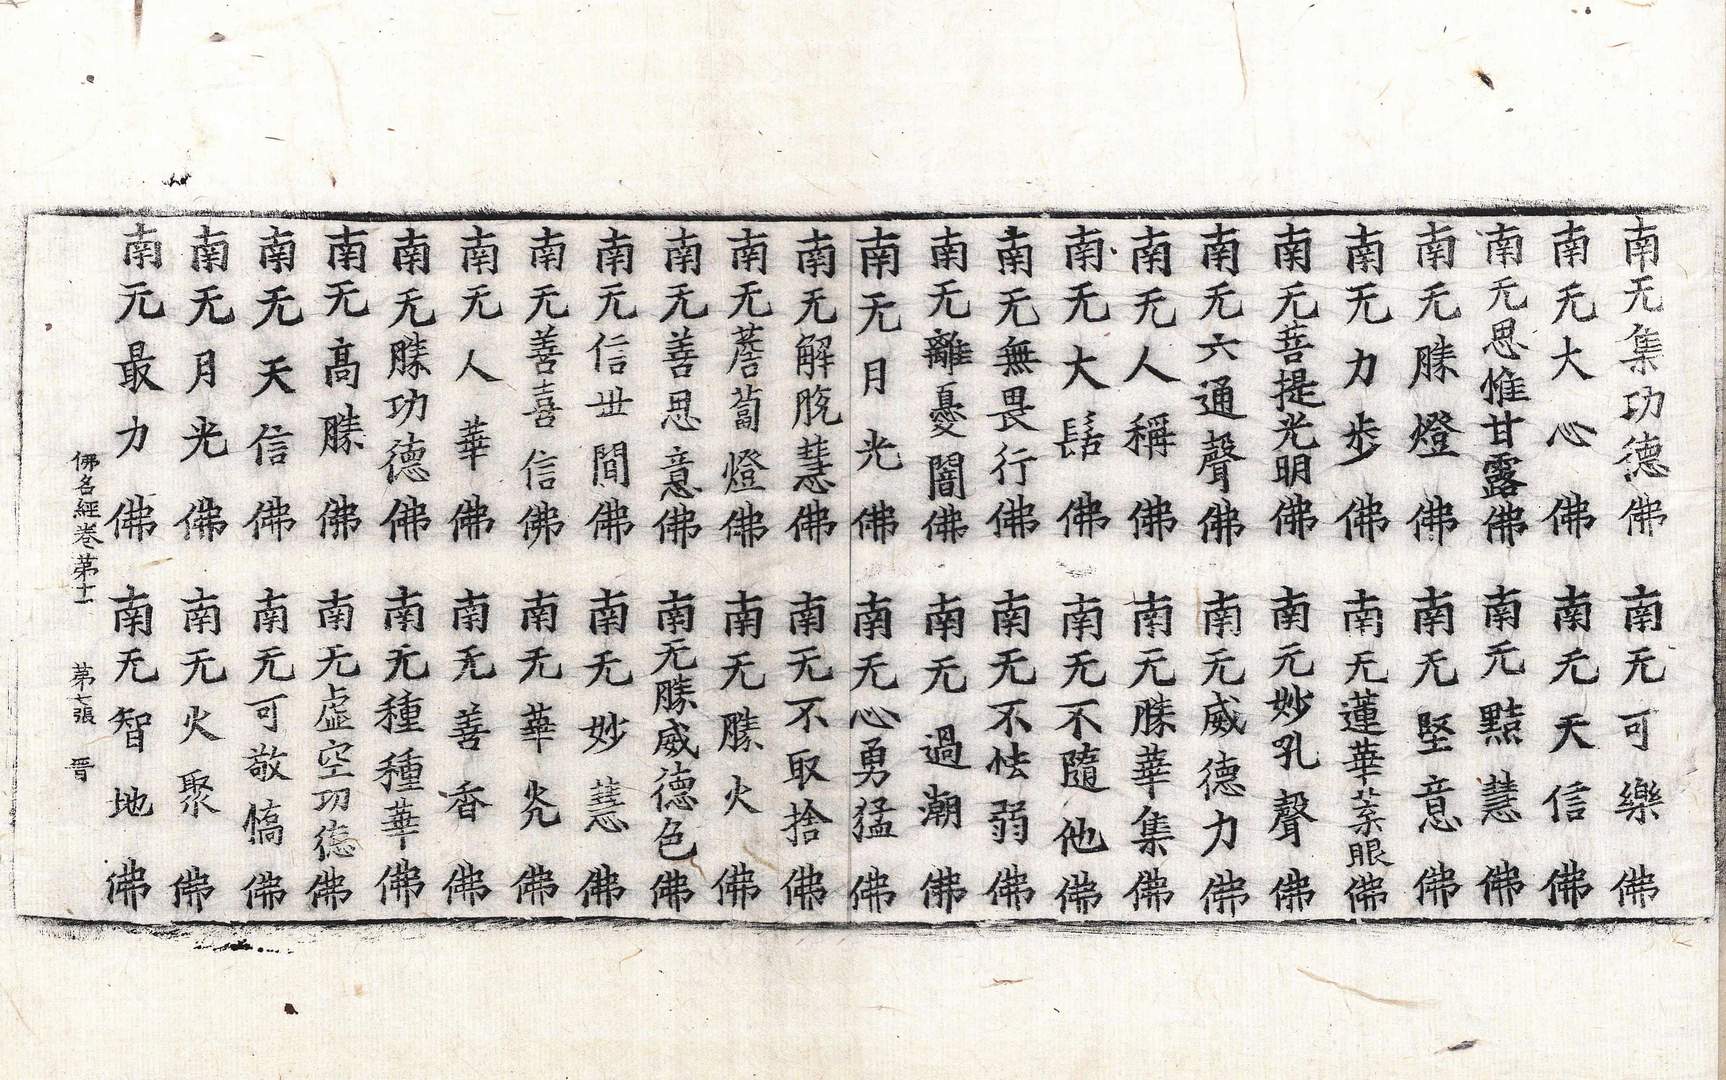 南无集功德佛　南无可樂佛
南无大心佛　南无天信佛
南无思惟甘露佛　南无黠慧佛
南无勝燈佛　南无堅意佛
南无力步佛　南无蓮華葉眼佛
南无菩提光明佛　南无妙吼聲佛
南无六通聲佛　南无威德力佛
南无人稱佛　南无勝華集佛
南无大髻佛　南无不隨他佛
南无無畏行佛　南无不怯弱佛
南无離憂闇佛　南无過潮佛
南无月光佛　南无心勇猛佛
南无解脫慧佛　南无不取捨佛
南无薝蔔燈佛　南无勝火佛
南无善思意佛　南无勝威德色佛
南无信世間佛　南无妙慧佛
南无善喜信佛　南无華光佛
南无人華佛　南无善香佛
南无勝功德佛　南无種種華佛
南无高勝佛　南无虛空功德佛
南无天信佛　南无可敬憍佛
南无月光佛　南无火聚佛
南无最力佛　南无智地佛
佛名經卷第十一　第七張　晋